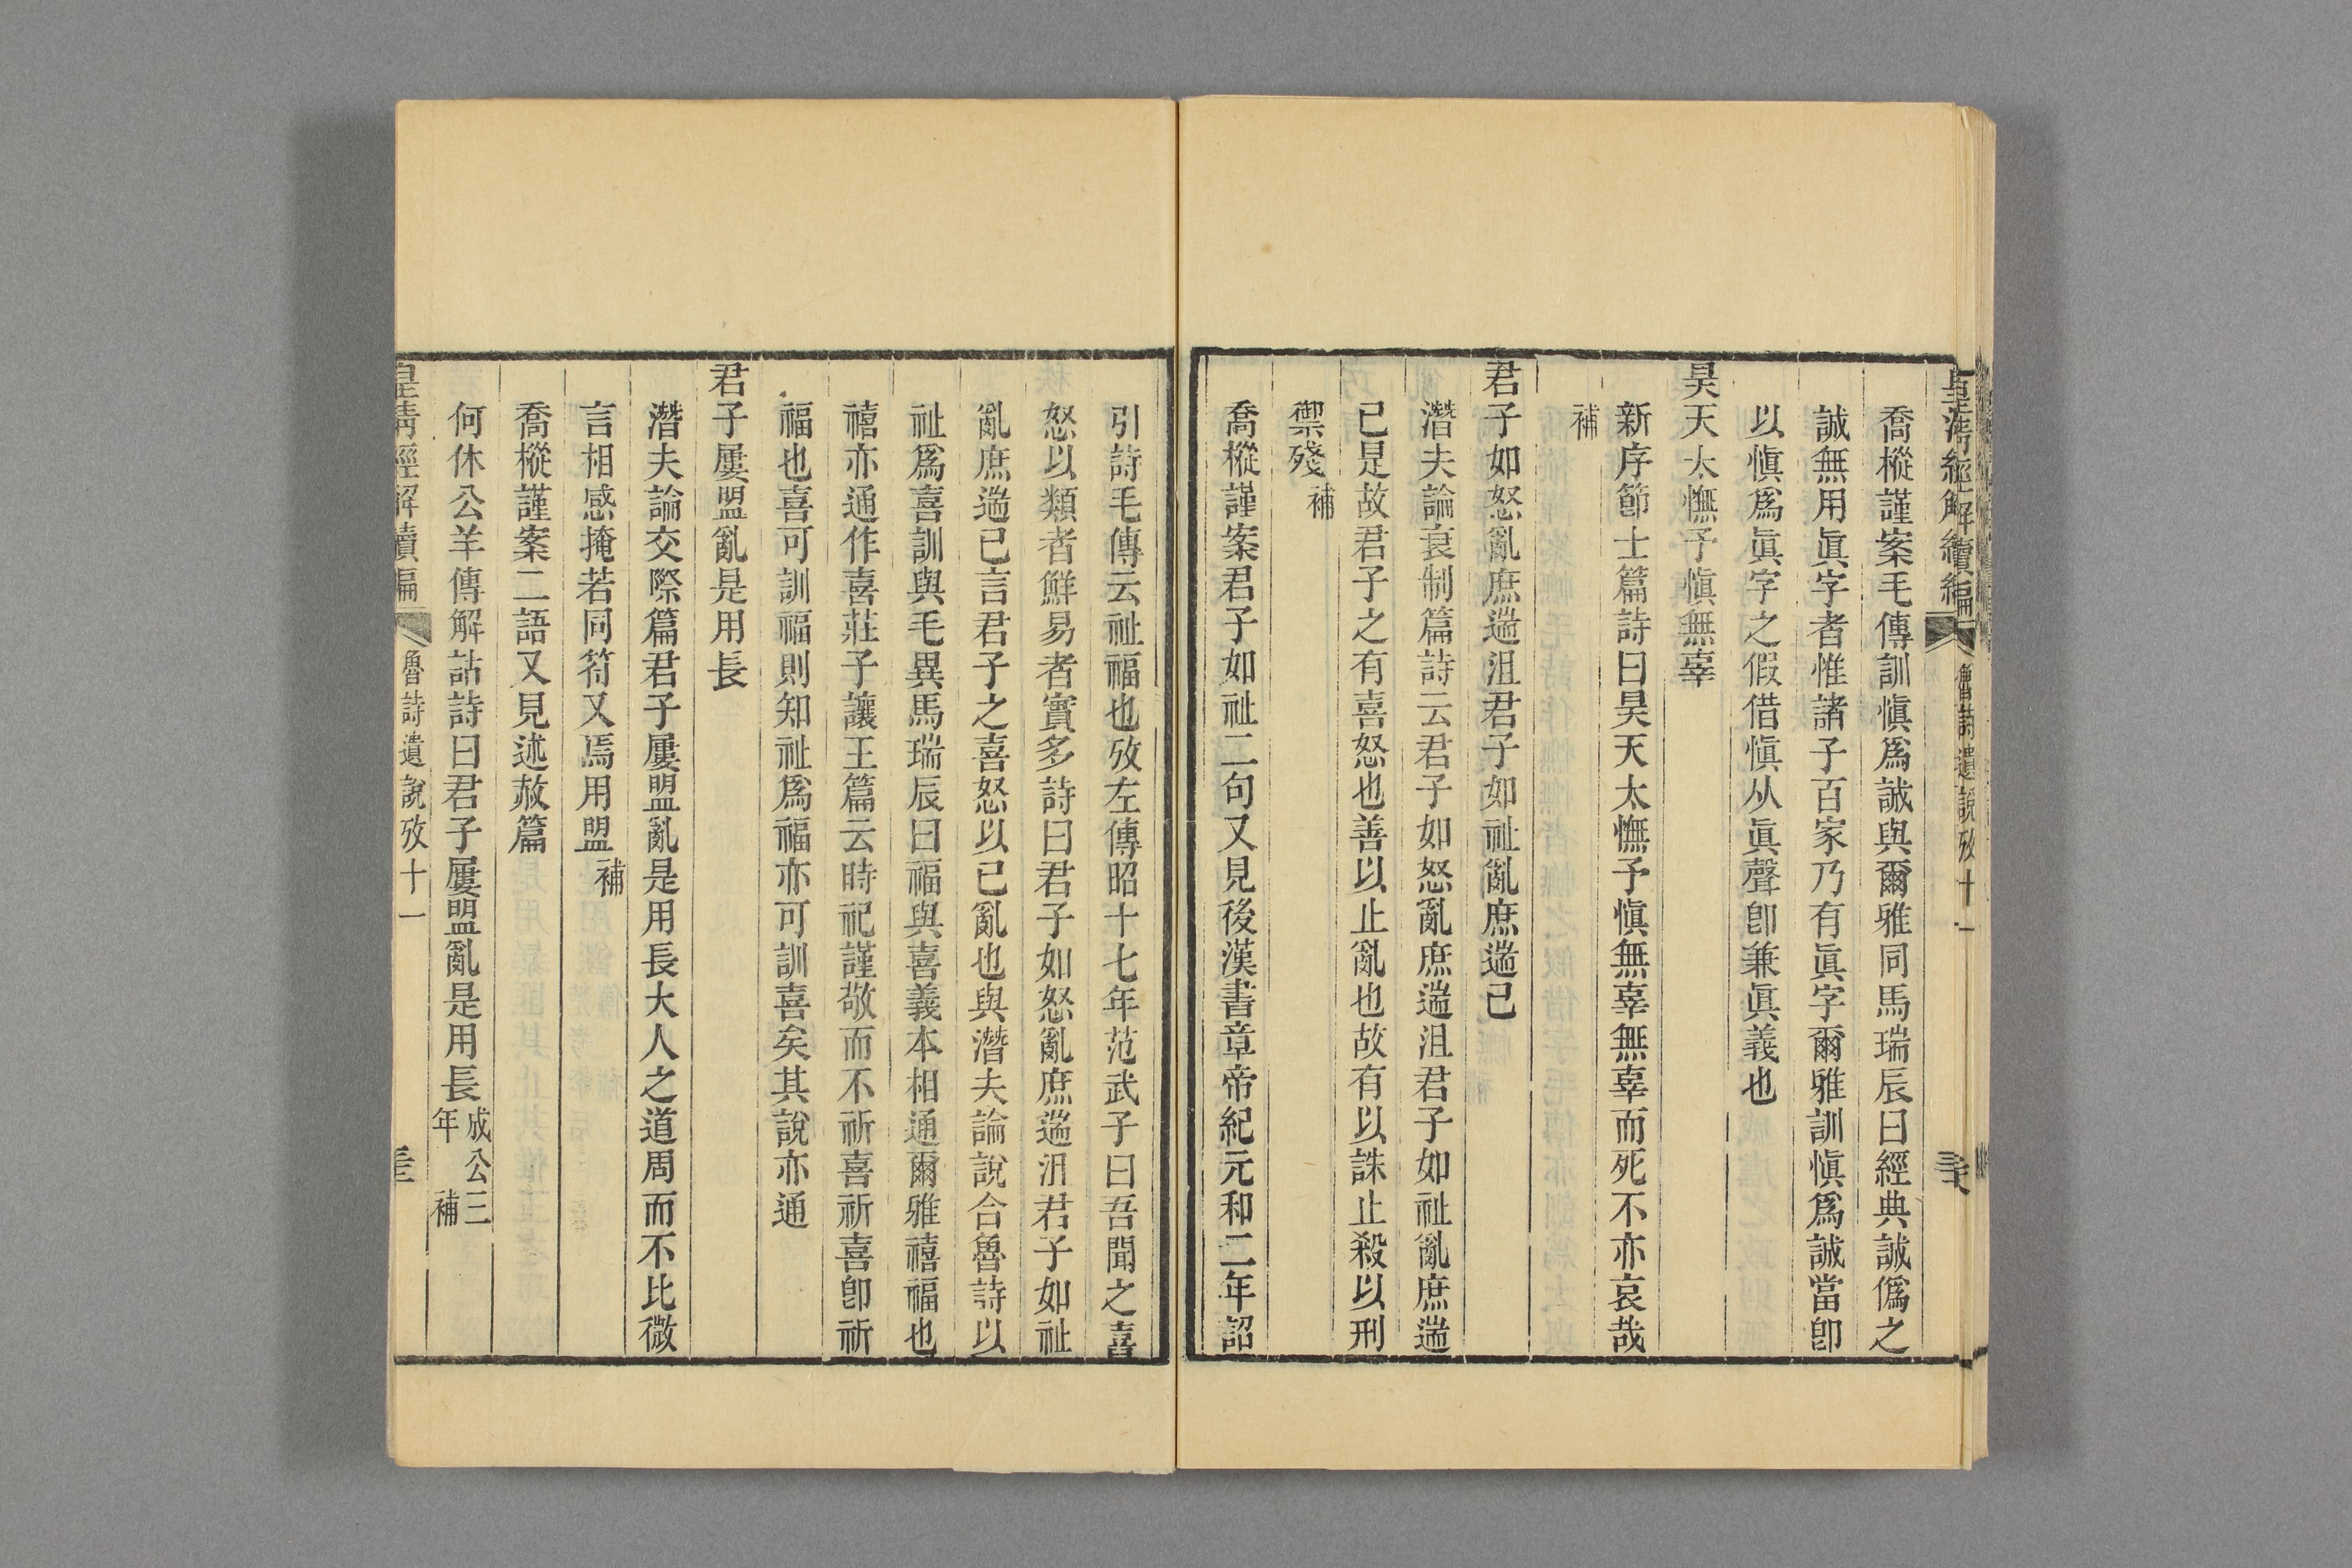 皇淸經解續編
魯詩遺說攷十一
喬樅謹案毛傳訓愼爲誠與爾雅同馬瑞辰曰經典誠僞之
誠無用眞字者惟諸子百家乃有眞字爾雅訓愼爲誠當卽
以愼爲眞字之假借愼从眞聲卽兼眞義也
昊天太憮予愼無辜
新序節士篇詩曰昊天太憮予愼無辜無辜而死不亦哀哉
補
君子如怒亂庶遄沮君子如祉亂庶遄已
潛夫論衰制篇詩云君子如怒亂庶遄沮君子如祉亂庶遄
已是故君子之有喜怒也善以止亂也故有以誅止殺以刑
禦殘補
喬樅謹案君子如祉二句又見後漢書章帝紀元和二年詔
引詩毛傳云祉福也攷左傳昭十七年范武子曰吾聞之喜
怒以類者鮮易者實多詩曰君子如怒亂庶遄沮君子如祉
亂庶遄已言君子之喜怒以已亂也與潛夫論說合魯詩以
祉爲喜訓與毛異馬瑞辰曰福與喜義本相通爾雅禧福也
禧亦通作喜莊子讓王篇云時祀謹敬而不祈喜祈喜卽祈
福也喜可訓福則知祉爲福亦可訓喜矣其說亦通
君子屢盟亂是用長
潛夫論交際篇君子屢盟亂是用長大人之道周而不比微
言相感掩若同符又焉用盟補
喬樅謹案二語又見述赦篇
何休公羊傳解詁詩曰君子屢盟亂是用長成公三年補
皇淸經解續編
魯詩遺說攷十一